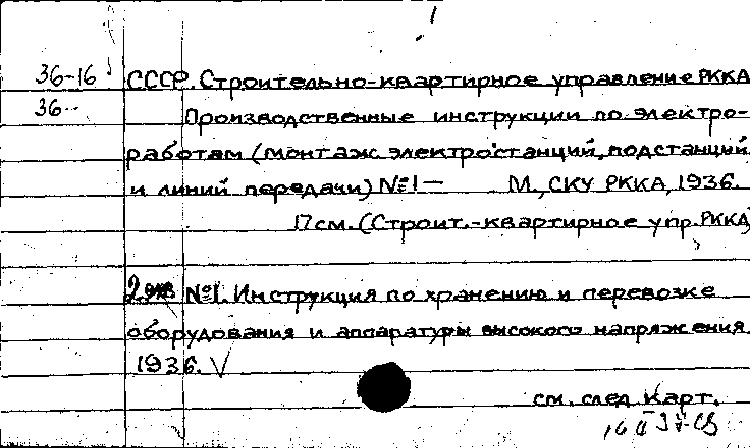 36-16 СССР. Строительно-квартирное управление РККА
36 Производственные инструкции по электро-
работам (монтаж электростанций, подстанций
и линий передачи) №1— М., СКУ РККА, 1936.
17 см. (Строит.-квартирное упр. РККА)
2 экз №1. Инструкция по хранению и перевозке
оборудования и аппаратуры высокого напряжения
1936. V
см. след карт.